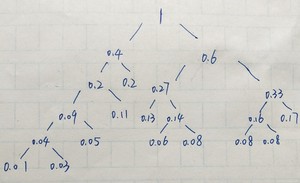 1
0.4 0.6
0.2 0.2 0.27 0.33
0.09 0.11 0.13 0.14 0.16 0.17
0.04 0.05 0.06 0.08 0.08 0.08
0.01 0.03